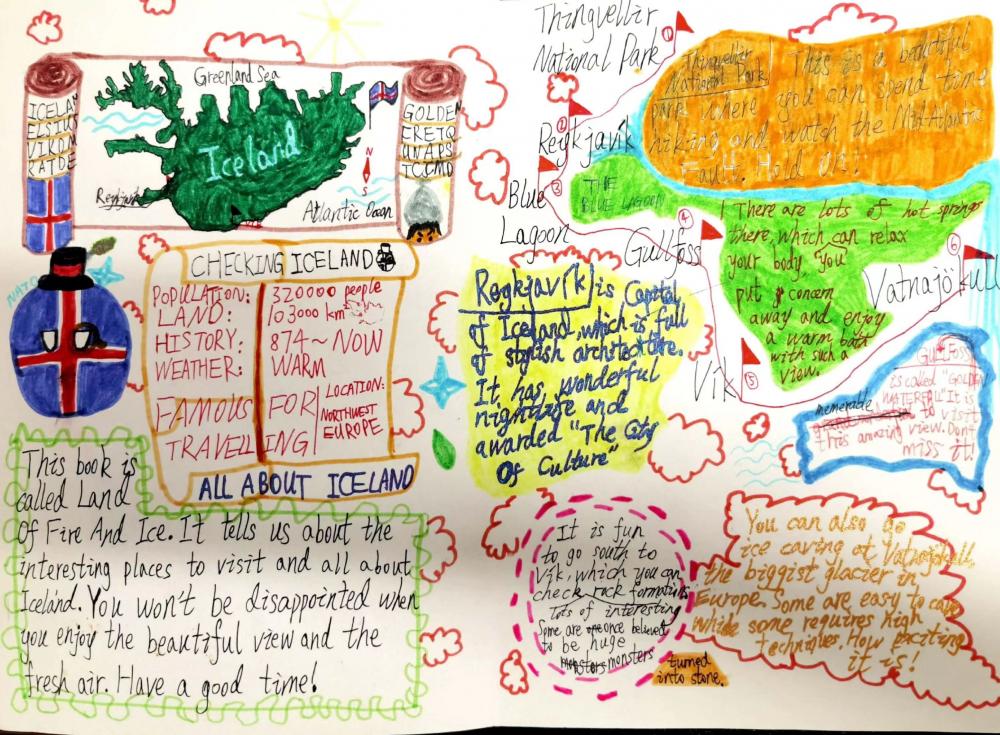 Greenland Sea
Iceland
Reykjavik
Atlantic Ocean
N
S
ICELA
ELSIUS
VIKDIM
RATDE
GOLDEN
ERETQ
UNAPS
TCAMD
CHECKING ICELAND
POPULATION: 320000 people
LAND: 103000 km²
HISTORY: 874~NOW
WEATHER: WARM
FAMOUS FOR
TRAVELLING
LOCATION:
NORTHWEST
EUROPE
ALL ABOUT ICELAND
This book is
called Land
Of Fire And Ice. It tells us about the
interesting places to visit and all about
Iceland. You won't be disappointed when
you enjoy the beautiful view and the
fresh air. Have a good time!
Thingvellir
National Park
①
②
Reykjavík
③
Blue
Lagoon
④
Gullfoss
⑤
Vík
⑥
Vatnajökull
Thingvellir
National Park
This is a beautiful
park where you can spend time
hiking and watch the Mid-Atlantic
Fault. Hold on!
THE
BLUE LAGOON
There are lots of hot springs
there, which can relax
your body, you
put concern
away and enjoy
a warm bath
with such a
view.
Reykjavík is Capital
of Iceland, which is full
of stylish architecture.
It has wonderful
nightlife and
awarded "The City
Of Culture"
Gullfoss
is called "GOLDEN
WATERFALL" It is
memerable to visit
this amazing view. Don't
miss it!
It is fun
to go south to
Vík, which you can
check rock formations
Lots of interesting
Some are once believed
to be huge
monsters
turned
into stone.
You can also go
ice caving at Vatnajökull,
the biggist glacier in
Europe. Some are easy to cave
while some requires high
techniques. How exciting
it is!